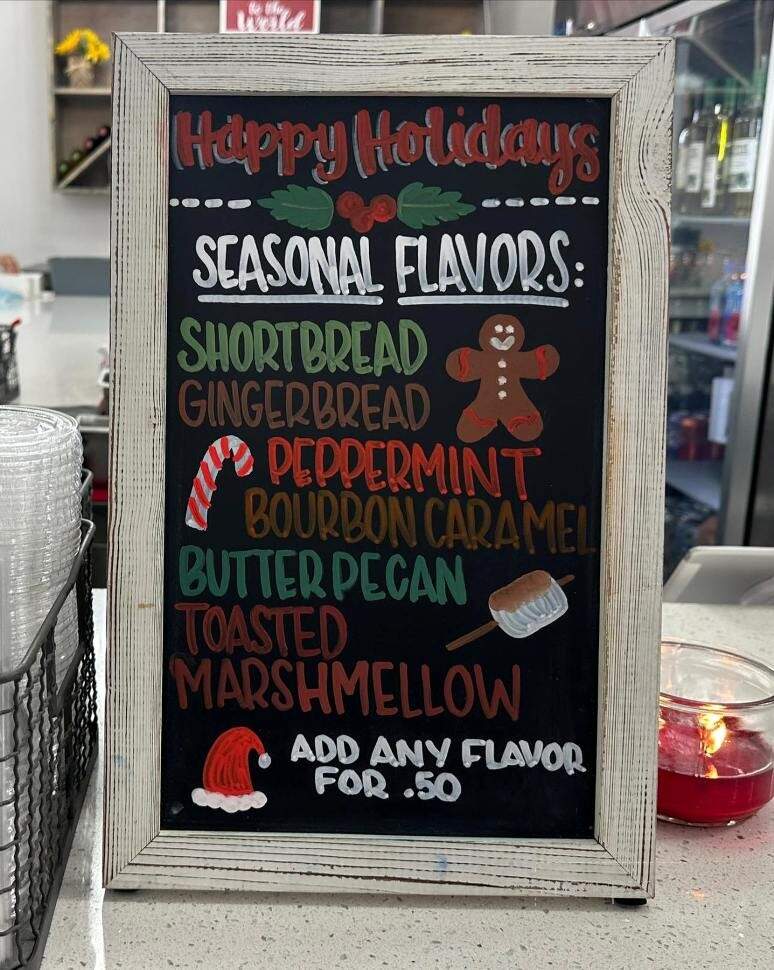 to the
World
Happy Holidays
SEASONAL FLAVORS:
SHORTBREAD
GINGERBREAD
PEPPERMINT
BOURBON CARAMEL
BUTTER PECAN
TOASTED
MARSHMELLOW
ADD ANY FLAVOR
FOR .50